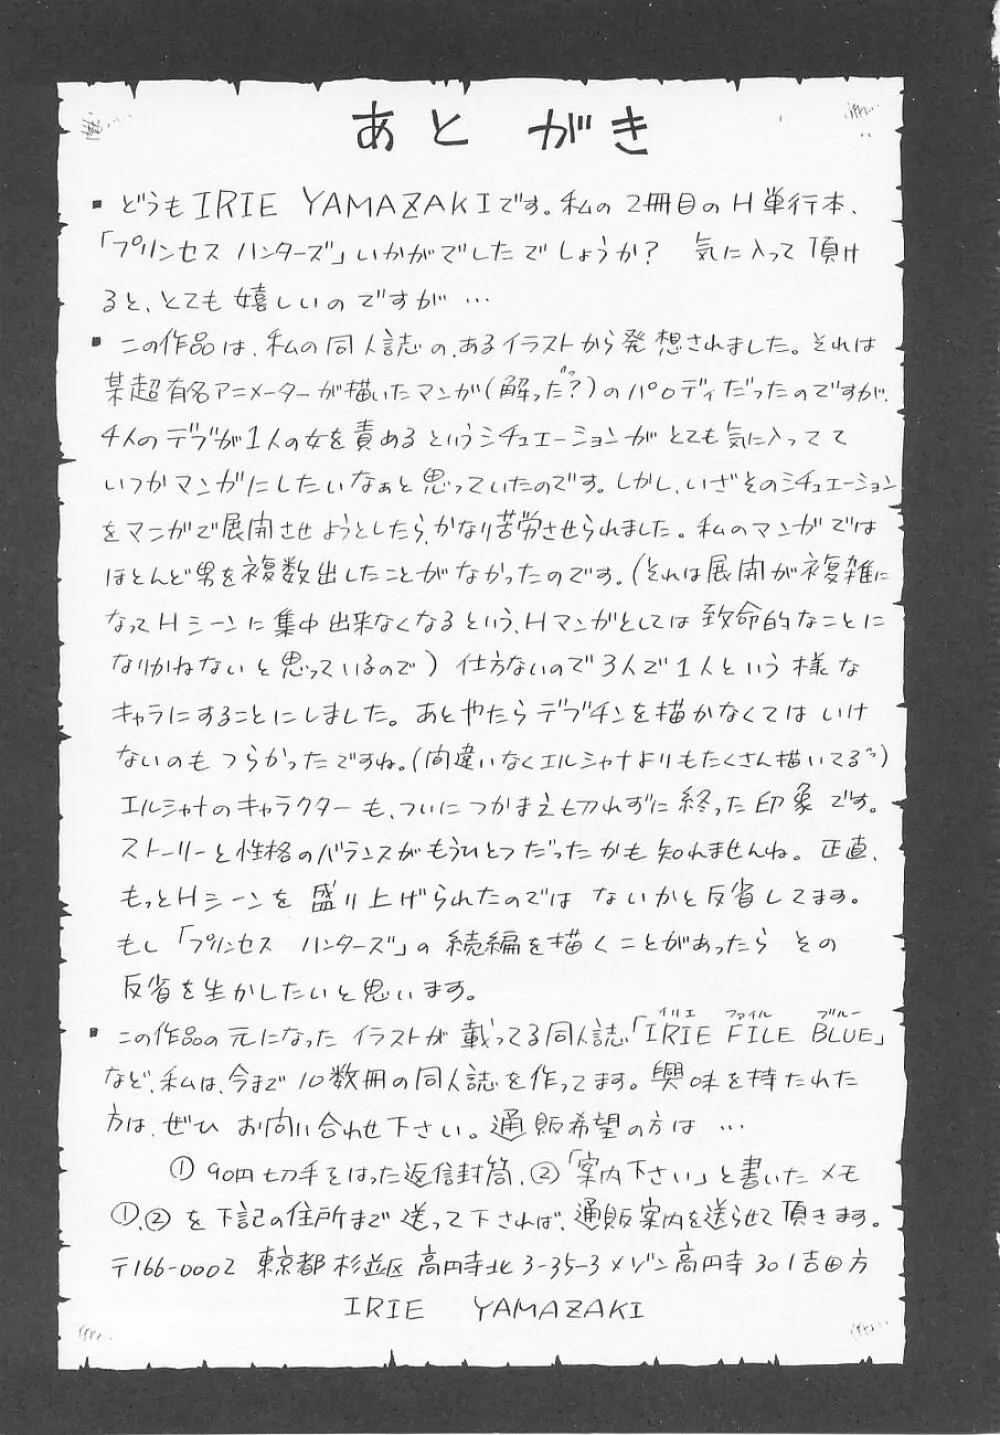 あとがき
▪ どうもIRIE YAMAZAKIです。私の2冊目のH単行本、
「プリンセス ハンターズ」いかがでしたでしょうか? 気に入って頂け
ると、とても嬉しいのですが…
▪ この作品は、私の同人誌の、あるイラストから発想されました。それは
某超有名アニメーターが描いたマンガ(解った?)のパロディだったのですが、
4人のデブが1人の女を責めるというシチュエーションがとても気に入ってて
いつかマンガにしたいなぁと思っていたのです。しかし、いざそのシチュエーション
をマンガで展開させようとしたら、かなり苦労させられました。私のマンガでは
ほとんど男を複数出したことがなかったのです。(それは展開が複雑に
なってHシーンに集中出来なくなるという、Hマンガとしては致命的なことに
なりかねないと思っているので) 仕方ないので3人で1人という様な
キャラにすることにしました。あとやたらデブチンを描かなくてはいけ
ないのもつらかったですね。(間違いなくエルシャナよりもたくさん描いてるっ)
エルシャナのキャラクターも、ついにつかまえ切れずに終った印象です。
ストーリーと性格のバランスがもうひとつだったかも知れませんね。正直、
もっとHシーンを盛り上げられたのではないかと反省してます。
もし「プリンセス ハンターズ」の続編を描くことがあったら その
反省を生かしたいと思います。
イリエ ファイル ブルー
▪ この作品の元になったイラストが載ってる同人誌「IRIE FILE BLUE」
など、私は、今まで10数冊の同人誌を作ってます。興味を持たれた
方は、ぜひ お問い合わせ下さい。通販希望の方は…
①90円切手をはった返信封筒、②「案内下さい」と書いたメモ
①、②を下記の住所まで送って下されば、通販案内を送らせて頂きます。
〒166-0002 東京都杉並区高円寺北3-35-3メゾン高円寺301吉田方
IRIE YAMAZAKI